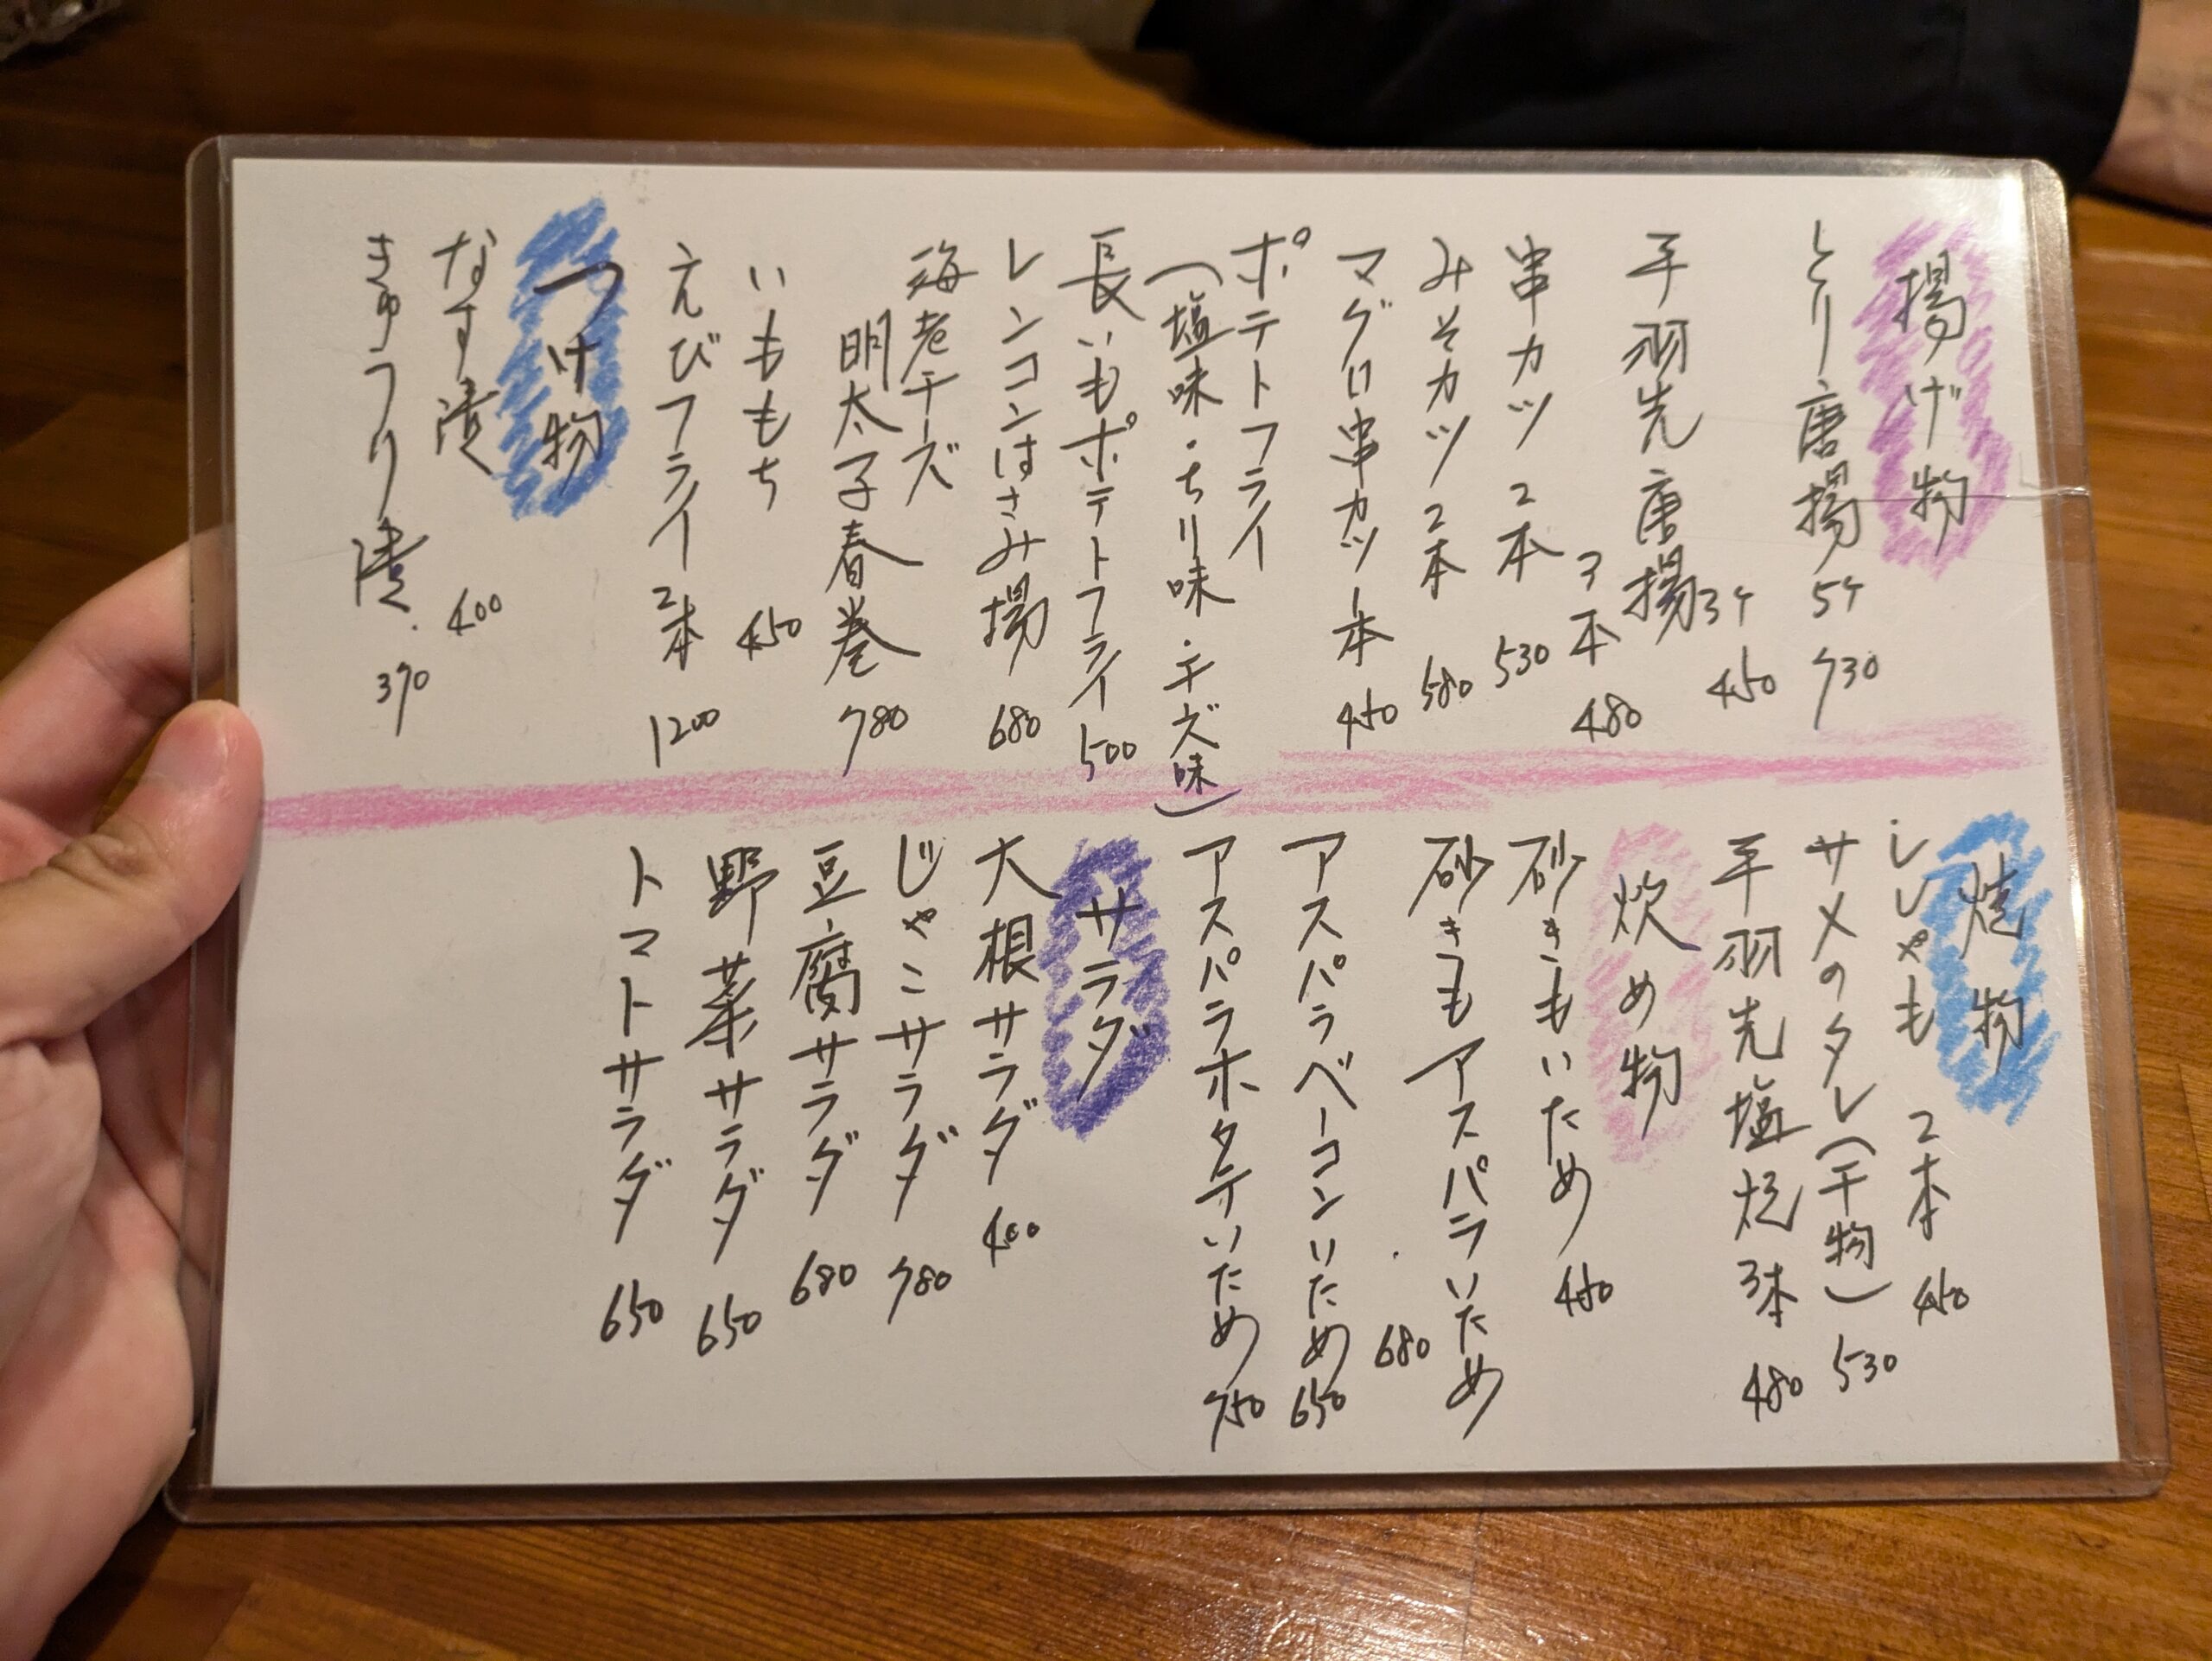 揚げ物
とり唐揚 5ケ 730
3ケ 450
手羽先唐揚 3本 480
串カツ 2本 530
みそカツ 2本 580
マグロ串カツ 1本 450
ポテトフライ
(塩味・ちり味・チーズ味)
長いもポテトフライ 500
レンコンはさみ揚 680
海老チーズ
明太子春巻 780
いももち 450
えびフライ 2本 1200
つけ物
なす漬 400
きゅうり漬 370
焼物
ししゃも 2本 450
サメのタレ(干物) 530
手羽先塩焼 3本 480
炊め物
砂きもいため 450
砂きもアスパラいため 680
アスパラベーコンいため 650
アスパラホタテいため 750
サラダ
大根サラダ 400
じゃこサラダ 780
豆腐サラダ 680
野菜サラダ 650
トマトサラダ 650